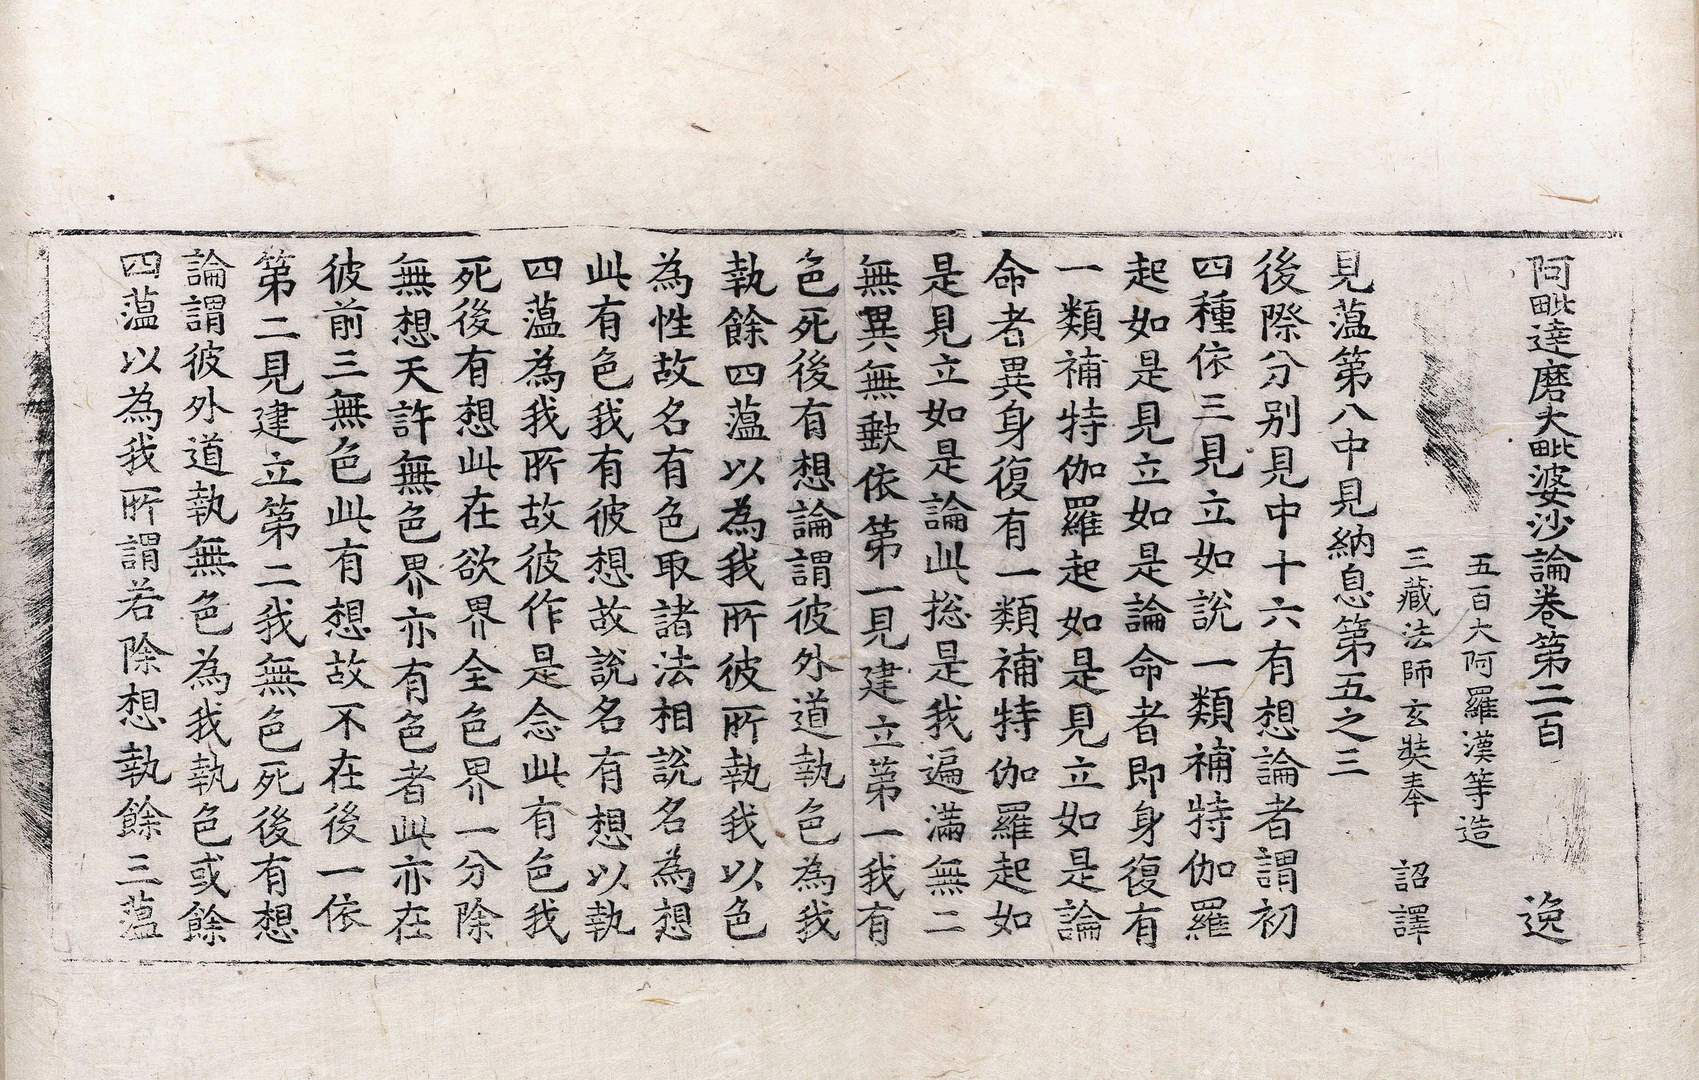 阿毗達磨大毗婆沙論卷第二百　逸
五百大阿羅漢等造
三藏法師玄奘奉　詔譯
見薀第八中見納息第五之三
後際分別見中十六有想論者謂初
四種依三見立如說一類補特伽羅
起如是見立如是論命者即身復有
一類補特伽羅起如是見立如是論
命者異身復有一類補特伽羅起如
是見立如是論此捴是我遍滿無二
無異無歃依第一見建立第一我有
色死後有想論謂彼外道執色為我
執餘四薀以為我所彼所執我以色
為性故名有色取諸法相說名為想
此有色我有彼想故說名有想以執
四薀為我所故彼作是念此有色我
死後有想此在欲界全色界一分除
無想天許無色界亦有色者此亦在
彼前三無色此有想故不在後一依
第二見建立第二我無色死後有想
論謂彼外道執無色為我執色或餘
四薀以為我所謂若除想執餘三薀